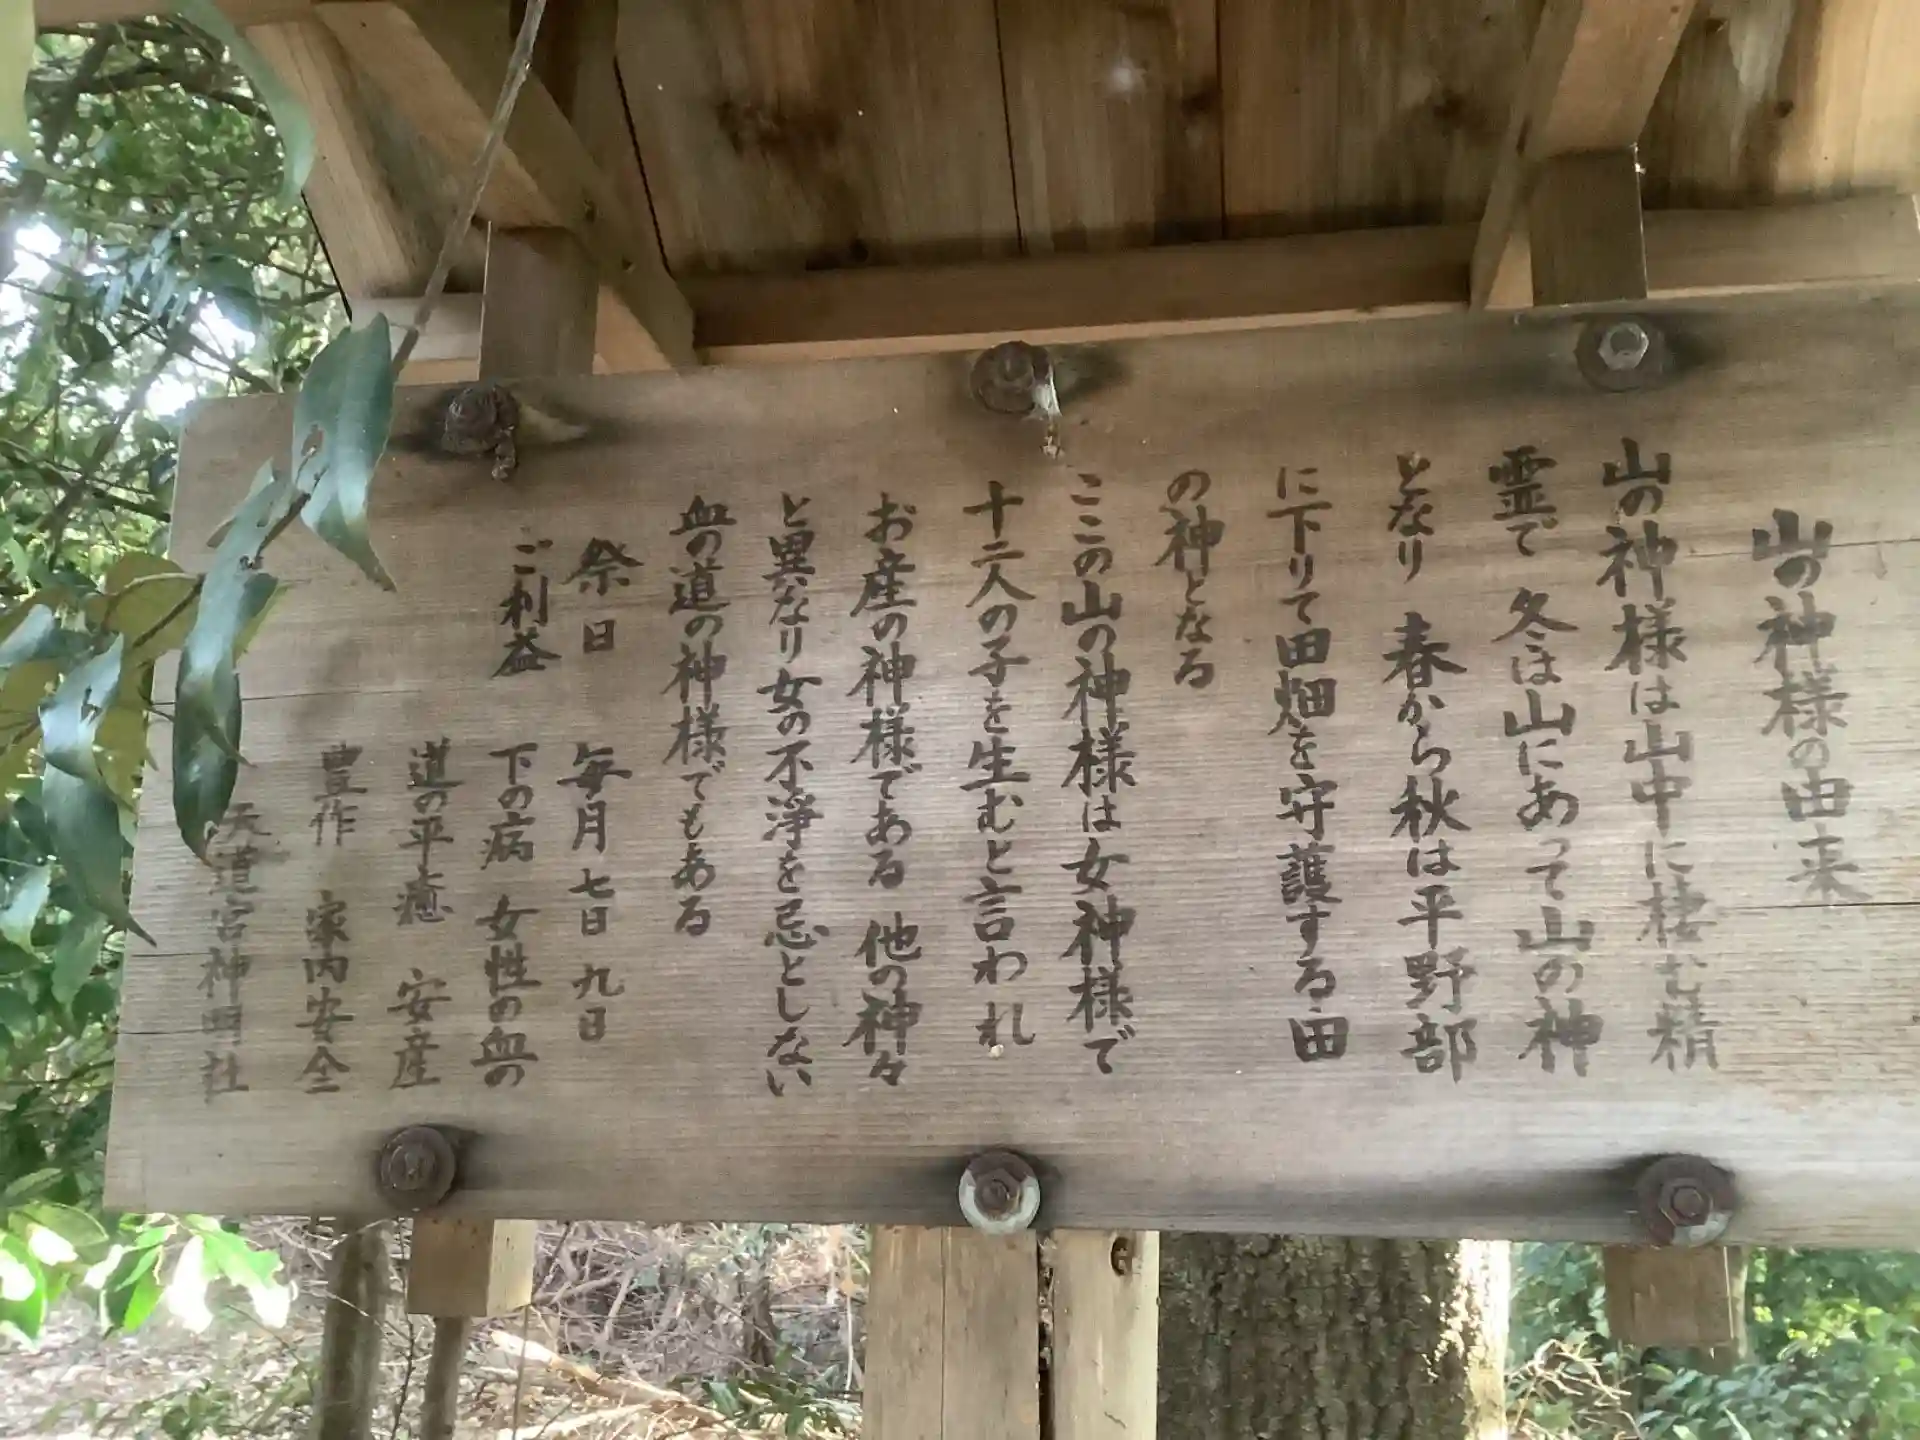 山の神様の由来
山の神様は山中に棲む精
霊で 冬は山にあって山の神
となり 春から秋は平野部
に下りて田畑を守護する田
の神となる
ここの山の神様は女神様で
十二人の子を生むと言われ
お産の神様である 他の神々
と異なり女の不浄を忌としない
血の道の神様でもある
祭日 毎月七日 九日
ご利益 下の病 女性の血の
道の平癒 安産
豊作 家内安全
天道宮神明社